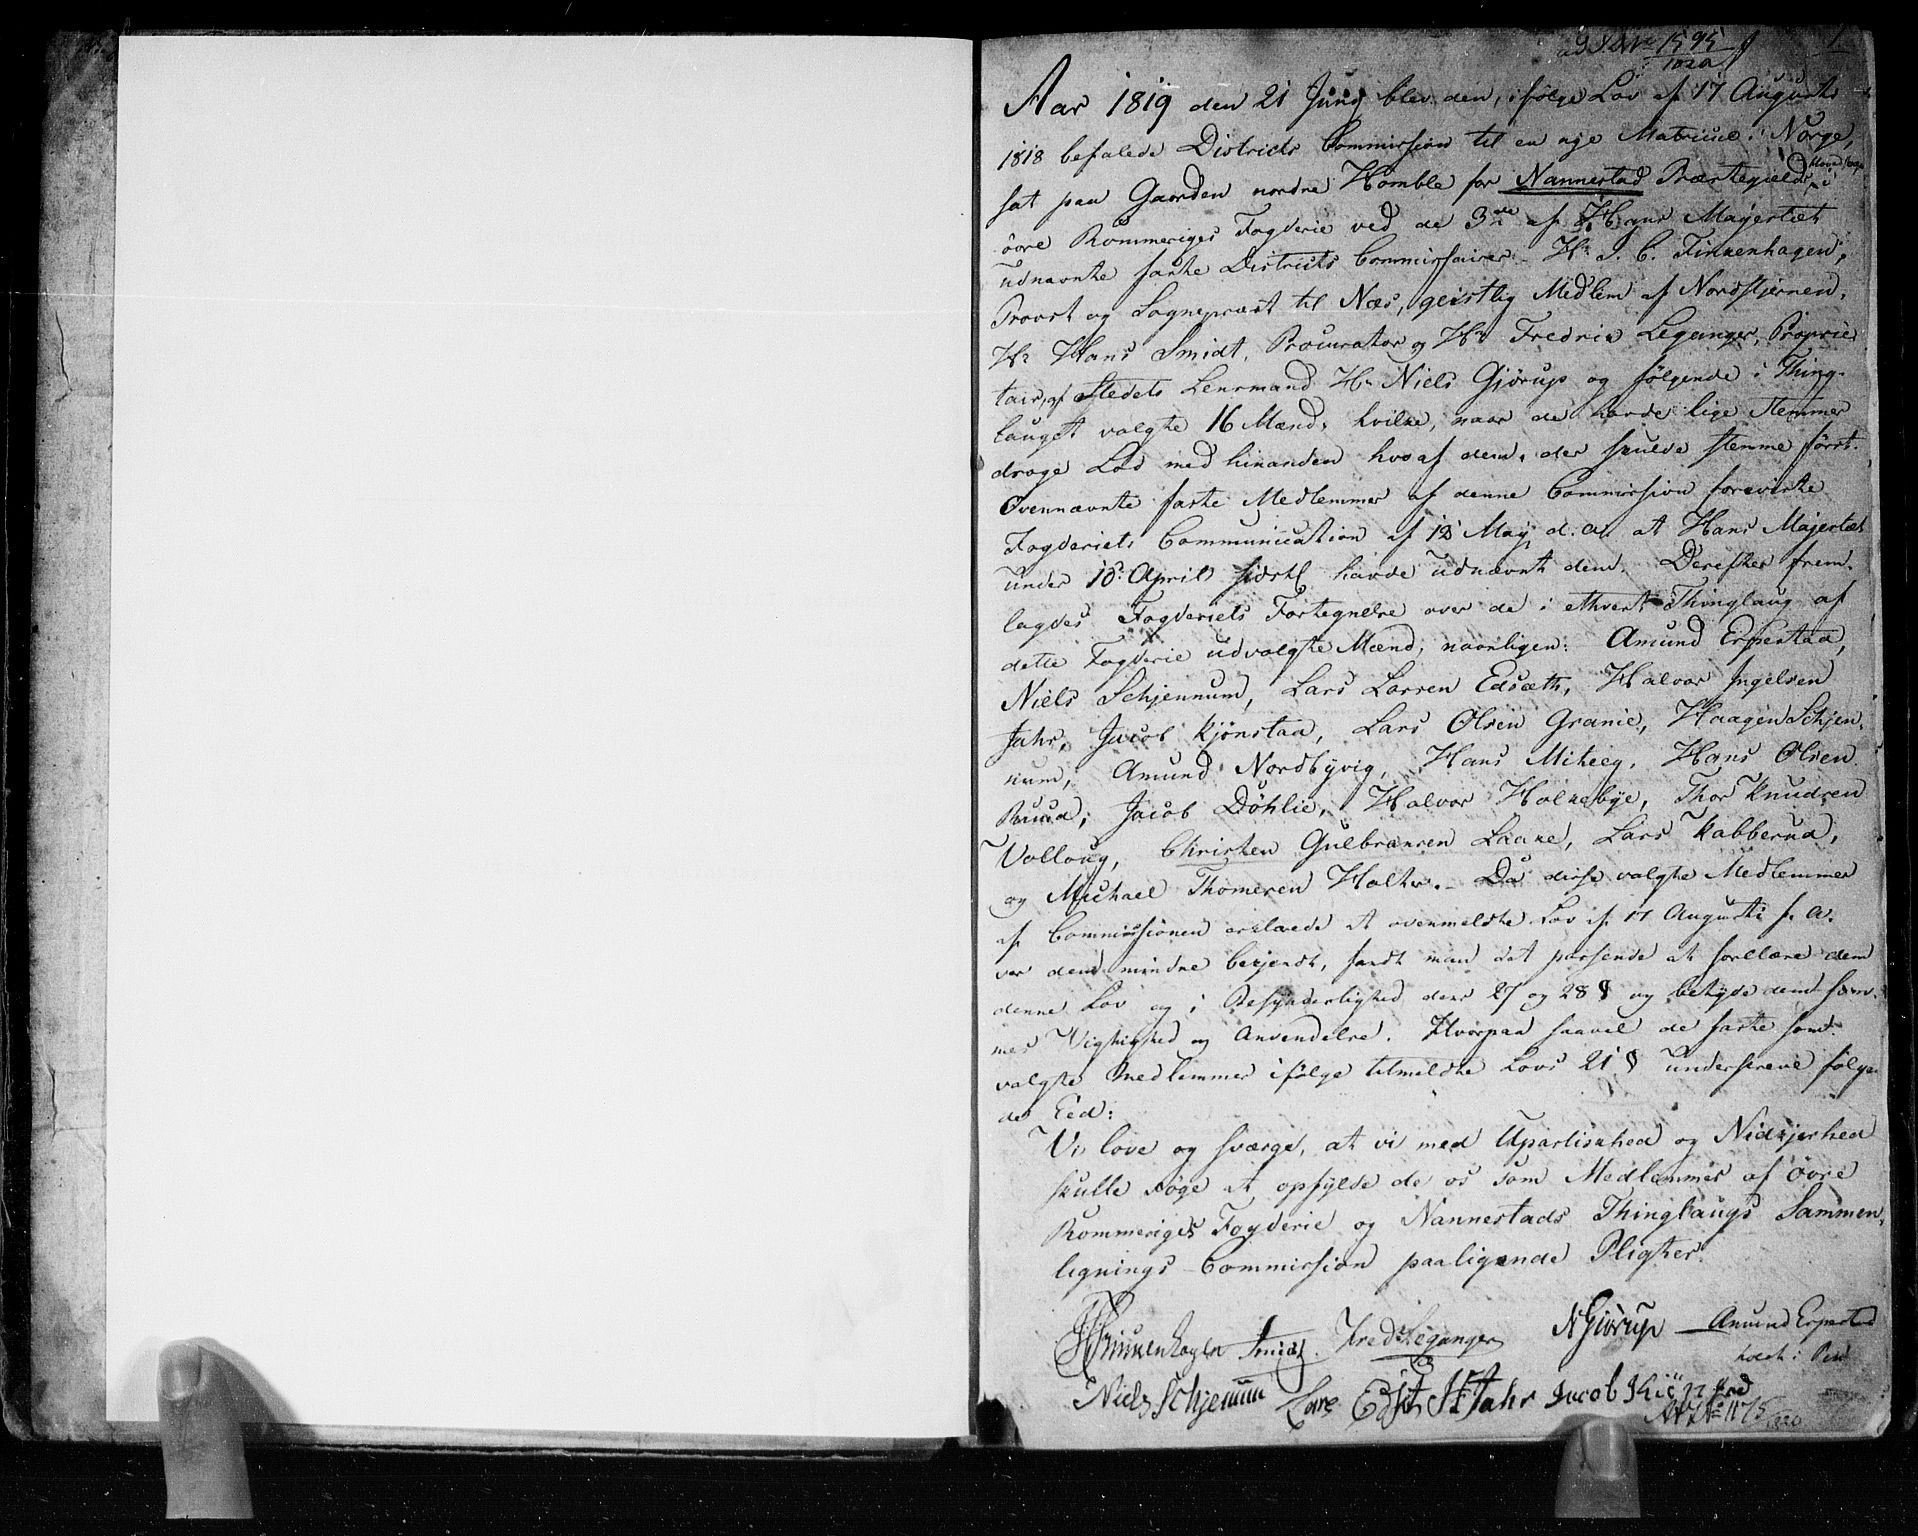 1595
1820
1
Aar 1819 den 21 Juny blev den, ifølge Lov af 17 Augusti
1818 befalede Districts Commission til en nye Matricul i Norge,
sat paa Gaarden nordre Homble for Nannestad Præstegield, Hovedsogn i
övre Rommeriges Fogderie ved de 3de af Hans Majestæt
udnævnte faste Districts Commissairer Hr. J. C. Finkenhagen,
Provst og Sognepræst til Næs, geistlig Medlem af Nordstjernen,
Hr Hans Smidt, Procurator og Hr Fredric Leganger, Proprie
tair, af Stedets Lensmand Hr Niels Gjörup og følgende i Thing-
lauget valgte 16 Mænd, hvilke, naar de havde lige Stemmer
droge Lod med hinanden hvo af dem, der skulde stemme først.
Ovennævnte faste Medlemmer af denne Commission foreviste
Fogderiets Communication af 12 May d. a. at Hans Majestæt
under 10 April sidstl havde udnævnt dem. Derefter frem-
lagdes Fogderiets Fortegnelse over de i ethvert Thinglaug af
dette Fogderie udvalgte Mænd, navnligen: Amund Erpestaa,
Niels Schjennum, Lars Larsen Edsæth, Halvor Ingelsen
Jahr, Jacob Kjønstaa, Lars Olsen Granie, Haagen Schjen-
num, Amund Nordbyvig, Hans Mikeeg, Hans Olsen
Ruud, Jacob Döhlie, Halvor Holkebye, Thor Knudsen
Vollaug, Christen Gulbransen Laake, Lars Kabberud,
og Michael Thomesen Holter. Da disse valgte Medlemmer
af Commissionen erklærede at ovenmeldte Lov af 17 Augusti f. a.
var dem mindre bekjendt, fandt man det passende at forelæse dem
denne Lov og i Besynderlighed dens 27 og 28 § og betyde dem sam-
mes Vigtighed og Anvendelse. Hvorpaa saavel de faste som
valgte Medlemmer ifølge tilmeldte Lovs 21 § underskreve følgen
de Eed:
Vi love og sværge, at vi med Upartiskhed og Nidkjerhed
skulle søge at opfylde de os som Medlemmer af övre
Rommeriges Fogderie og Nannestads Thinglaugs Sammen-
lignings Commission paaligende Pligter.
Finkenhagen Smidt. Fred Leganger NGiörup Amund Erpestad
holdt i Pen
Niels Schjennum Lars Edset H I Jahr Jacob Kiönstad
No 1175